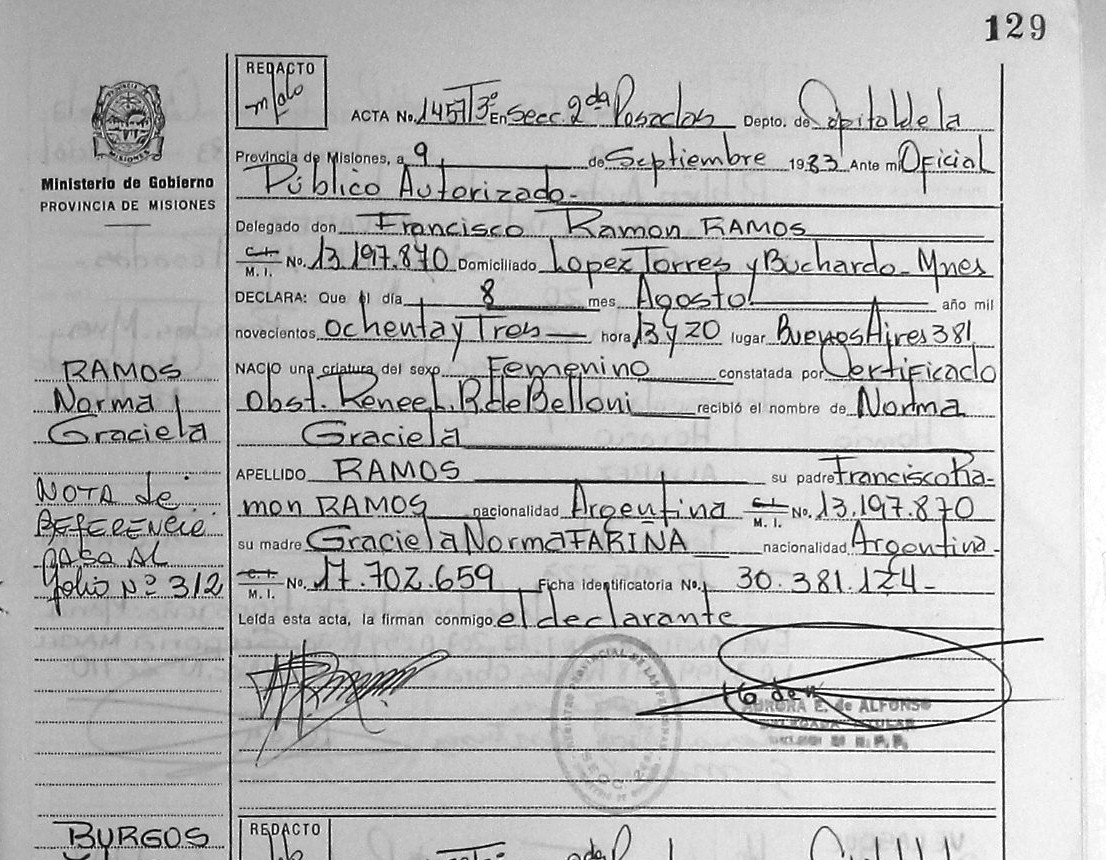 129
REDACTO
ACTA No. 1457 T 3º En Secc. 2da Posadas Depto. de Capital de la
Provincia de Misiones, a 9 de Septiembre 1983 Ante mi Oficial
Público Autorizado-
Ministerio de Gobierno
PROVINCIA DE MISIONES
Delegado don Francisco Ramon RAMOS
C. I.
M. I. No. 13.197.870 Domiciliado Lopez Torres y Buchardo - Mnes
DECLARA: Que el día 8 mes Agosto año mil
novecientos ochenta y Tres hora 13 y 20 lugar Buenos Aires 381
NACIO una criatura del sexo Femenino constatada por Certificado
Obst. Renee L. R de Belloni recibió el nombre de Norma
Graciela
RAMOS
Norma
Graciela
APELLIDO RAMOS su padre Francisco Ra-
mon RAMOS nacionalidad Argentina C. I. M. I. No. 13.197.870
su madre Graciela Norma FARINA nacionalidad Argentina-
C. I. M. I. No. 17.702.659 Ficha identificatoria No. 30.381.124-
Leída esta acta, la firman conmigo el declarante
NOTA de
REFERENCIA
pasa AL
folio Nº 312
AURORA E. de ALFONSO
BURGOS
REDACTO